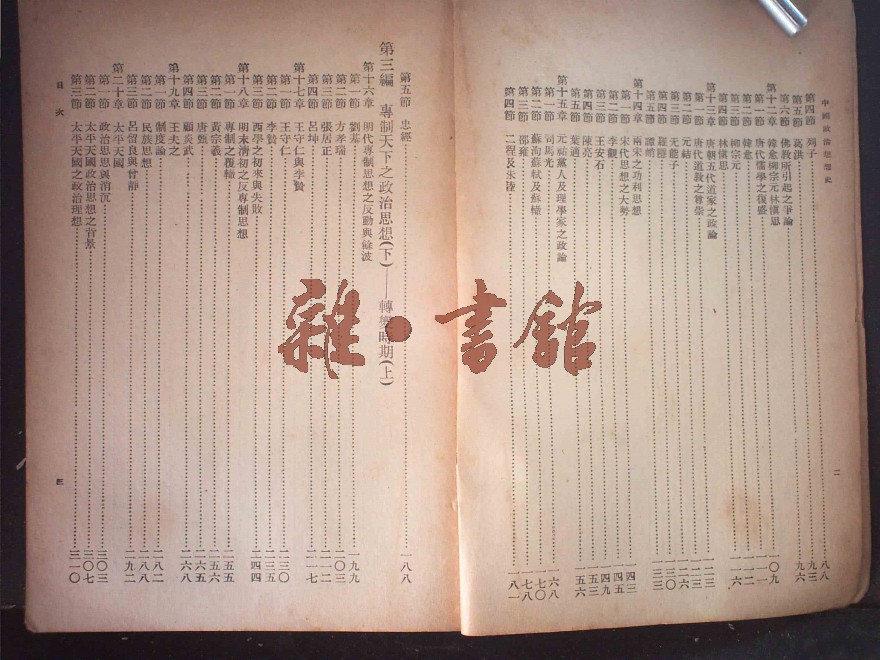 中國政治思想史
第四節 列子 八八
第五節 葛洪 九三
第六節 佛教所引起之爭論 九六
第十二章 韓愈柳宗元林愼思 一〇九
第一節 唐代儒學之復盛
第二節 韓愈 一一二
第三節 柳宗元 一一六
第四節 林愼思
第十三章 唐朝五代道家之政論 一二三
第一節 唐代道教之尊崇 一二三
第二節 元結 一二六
第三節 无能子
第四節 羅隱
第五節 譚峭
第十四章 兩宋之功利思想
第一節 宋代思想之大勢 一四三
第二節 李覯 一四五
第三節 王安石 一四九
第四節 陳亮 一五三
第五節 葉適 一五六
第十五章 元祐黨人及理學家之政論
第一節 司馬光 一六八
第二節 蘇洵蘇軾及蘇轍 一七〇
第三節 邵雍 一七八
第四節 二程及朱陸 一八一
二
第五節 忠經 一八八
第三編 專制天下之政治思想(下)——轉變時期(上)
第十六章 明代專制思想之反動與餘波
第一節 劉基 一九九
第二節 方孝孺 二〇三
第三節 張居正 二一二
第四節 呂坤 二一七
第十七章 王守仁與李贄
第一節 王守仁 二三〇
第二節 李贄 二三五
第三節 西學之初來與失敗 二四四
第十八章 明末清初之反專制思想
第一節 專制之覆轍 二五五
第二節 黃宗羲 二五六
第三節 唐甄 二六五
第四節 顧炎武 二六八
第十九章 王夫之
第一節 制度論 二八二
第二節 民族思想 二八八
第三節 呂留良與曾靜 二九二
第二十章 太平天國
第一節 政治思想與消沉 三〇三
第二節 太平天國政治思想之背景 三〇七
第三節 太平天國之政治理想 三一〇
目次
三
雜·書館